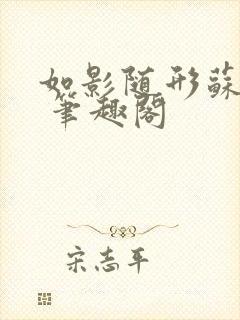 如影随形蘇
笔趣阁
宋志平